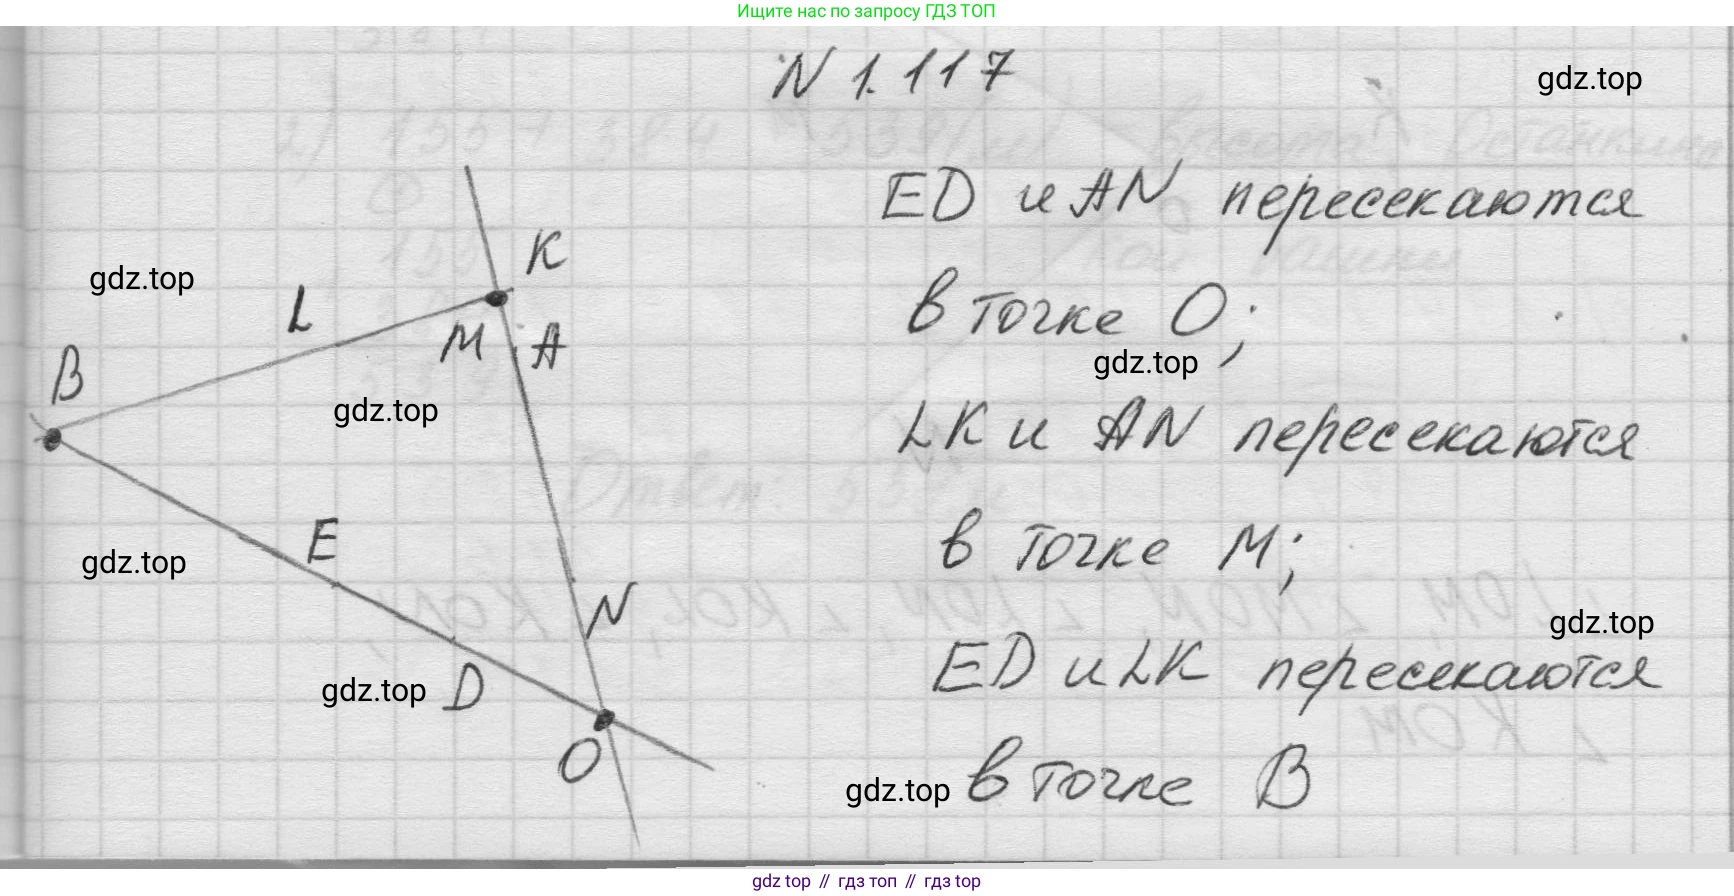 Ищите нас по запросу ГДЗ ТОП
N 1.117
gdz.top
ED и AN пересекаются
K
gdz.top
L
в точке O;
M A
gdz.top
B
gdz.top
LK и AN пересекаются
E
gdz.top
в точке M;
N
gdz.top
ED и LK пересекаются
gdz.top
D
O
gdz.top
в точке B
gdz top // гдз топ // гдз top